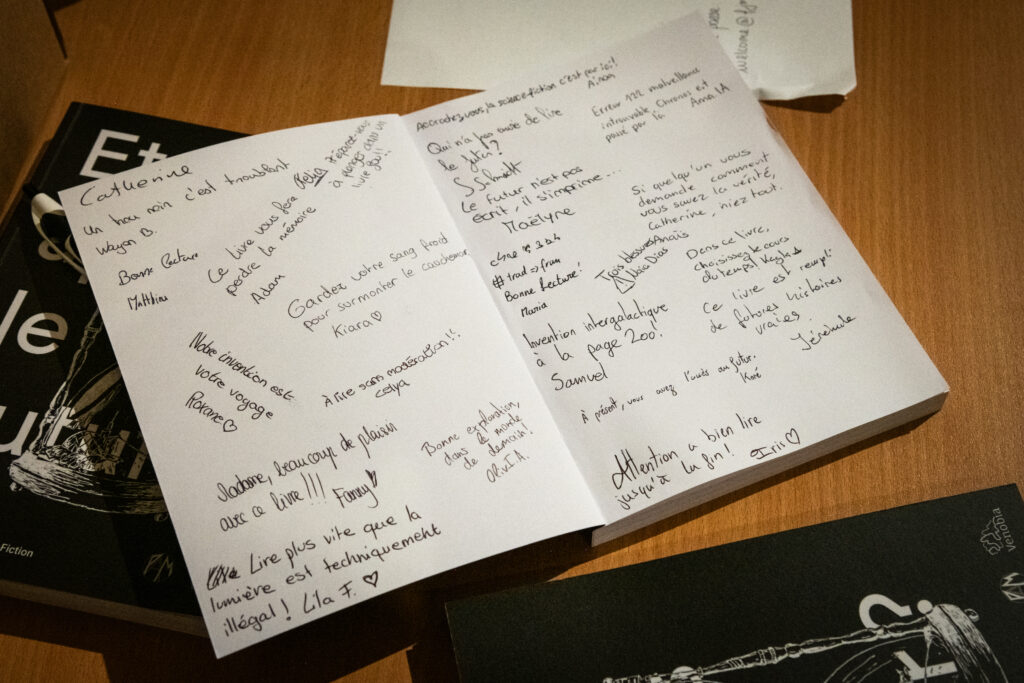 Catherine
un trou noir c'est troublant
Wayan B.
Préparez-vous
à plonger dans un
livre
Bonne lecture
Matthieu
Ce livre vous fera
perdre la mémoire
Adam
Gardez votre sang froid
pour surmonter le cauchemar
Kiara ♡
Notre invention est
votre voyage
Roxane ♡
À lire sans modération !!
celya
Madame, beaucoup de plaisir
avec ce livre !!! Fanny
Bonne exploration,
dans le monde
de demain!
Lire plus vite que la
lumière est techniquement
illégal ! Lila F. ♡
Accrochez vous, la science-fiction c'est par ici !
Qui n'a pas envie de lire
le futur?
Erreur 122 malveillance
introuvable, Chronos est
passé par là
Le futur n'est pas
écrit, il s'imprime...
Maëlyne
Si quelqu'un vous
demande comment
vous savez la vérité,
Catherine, niez tout.
Anaïs
Bonne lecture!
Dans ce livre,
choisissez le cours
du temps!
Invention intergalactique
à la page 200!
Samuel
Ce livre est rempli
de futures histoires
vraies.
À présent, vous avez l'accès au futur.
Attention a bien lire
jusqu'à la fin ! Iris ♡
Et
le
utur
Fiction
venobia
?